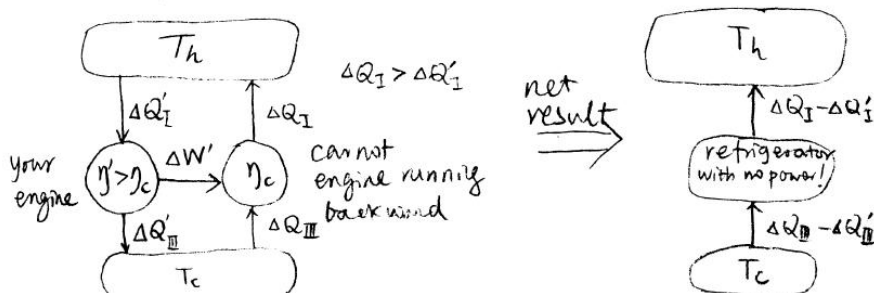 T_h
ΔQ'_I
ΔQ_I
ΔQ_I > ΔQ'_I
your
engine
η' > η_c
ΔW'
η_c
cannot
engine running
backward
ΔQ'_III
ΔQ_III
T_c
net
result
T_h
ΔQ_I - ΔQ'_I
refrigerator
with no power!
ΔQ_III - ΔQ'_III
T_c